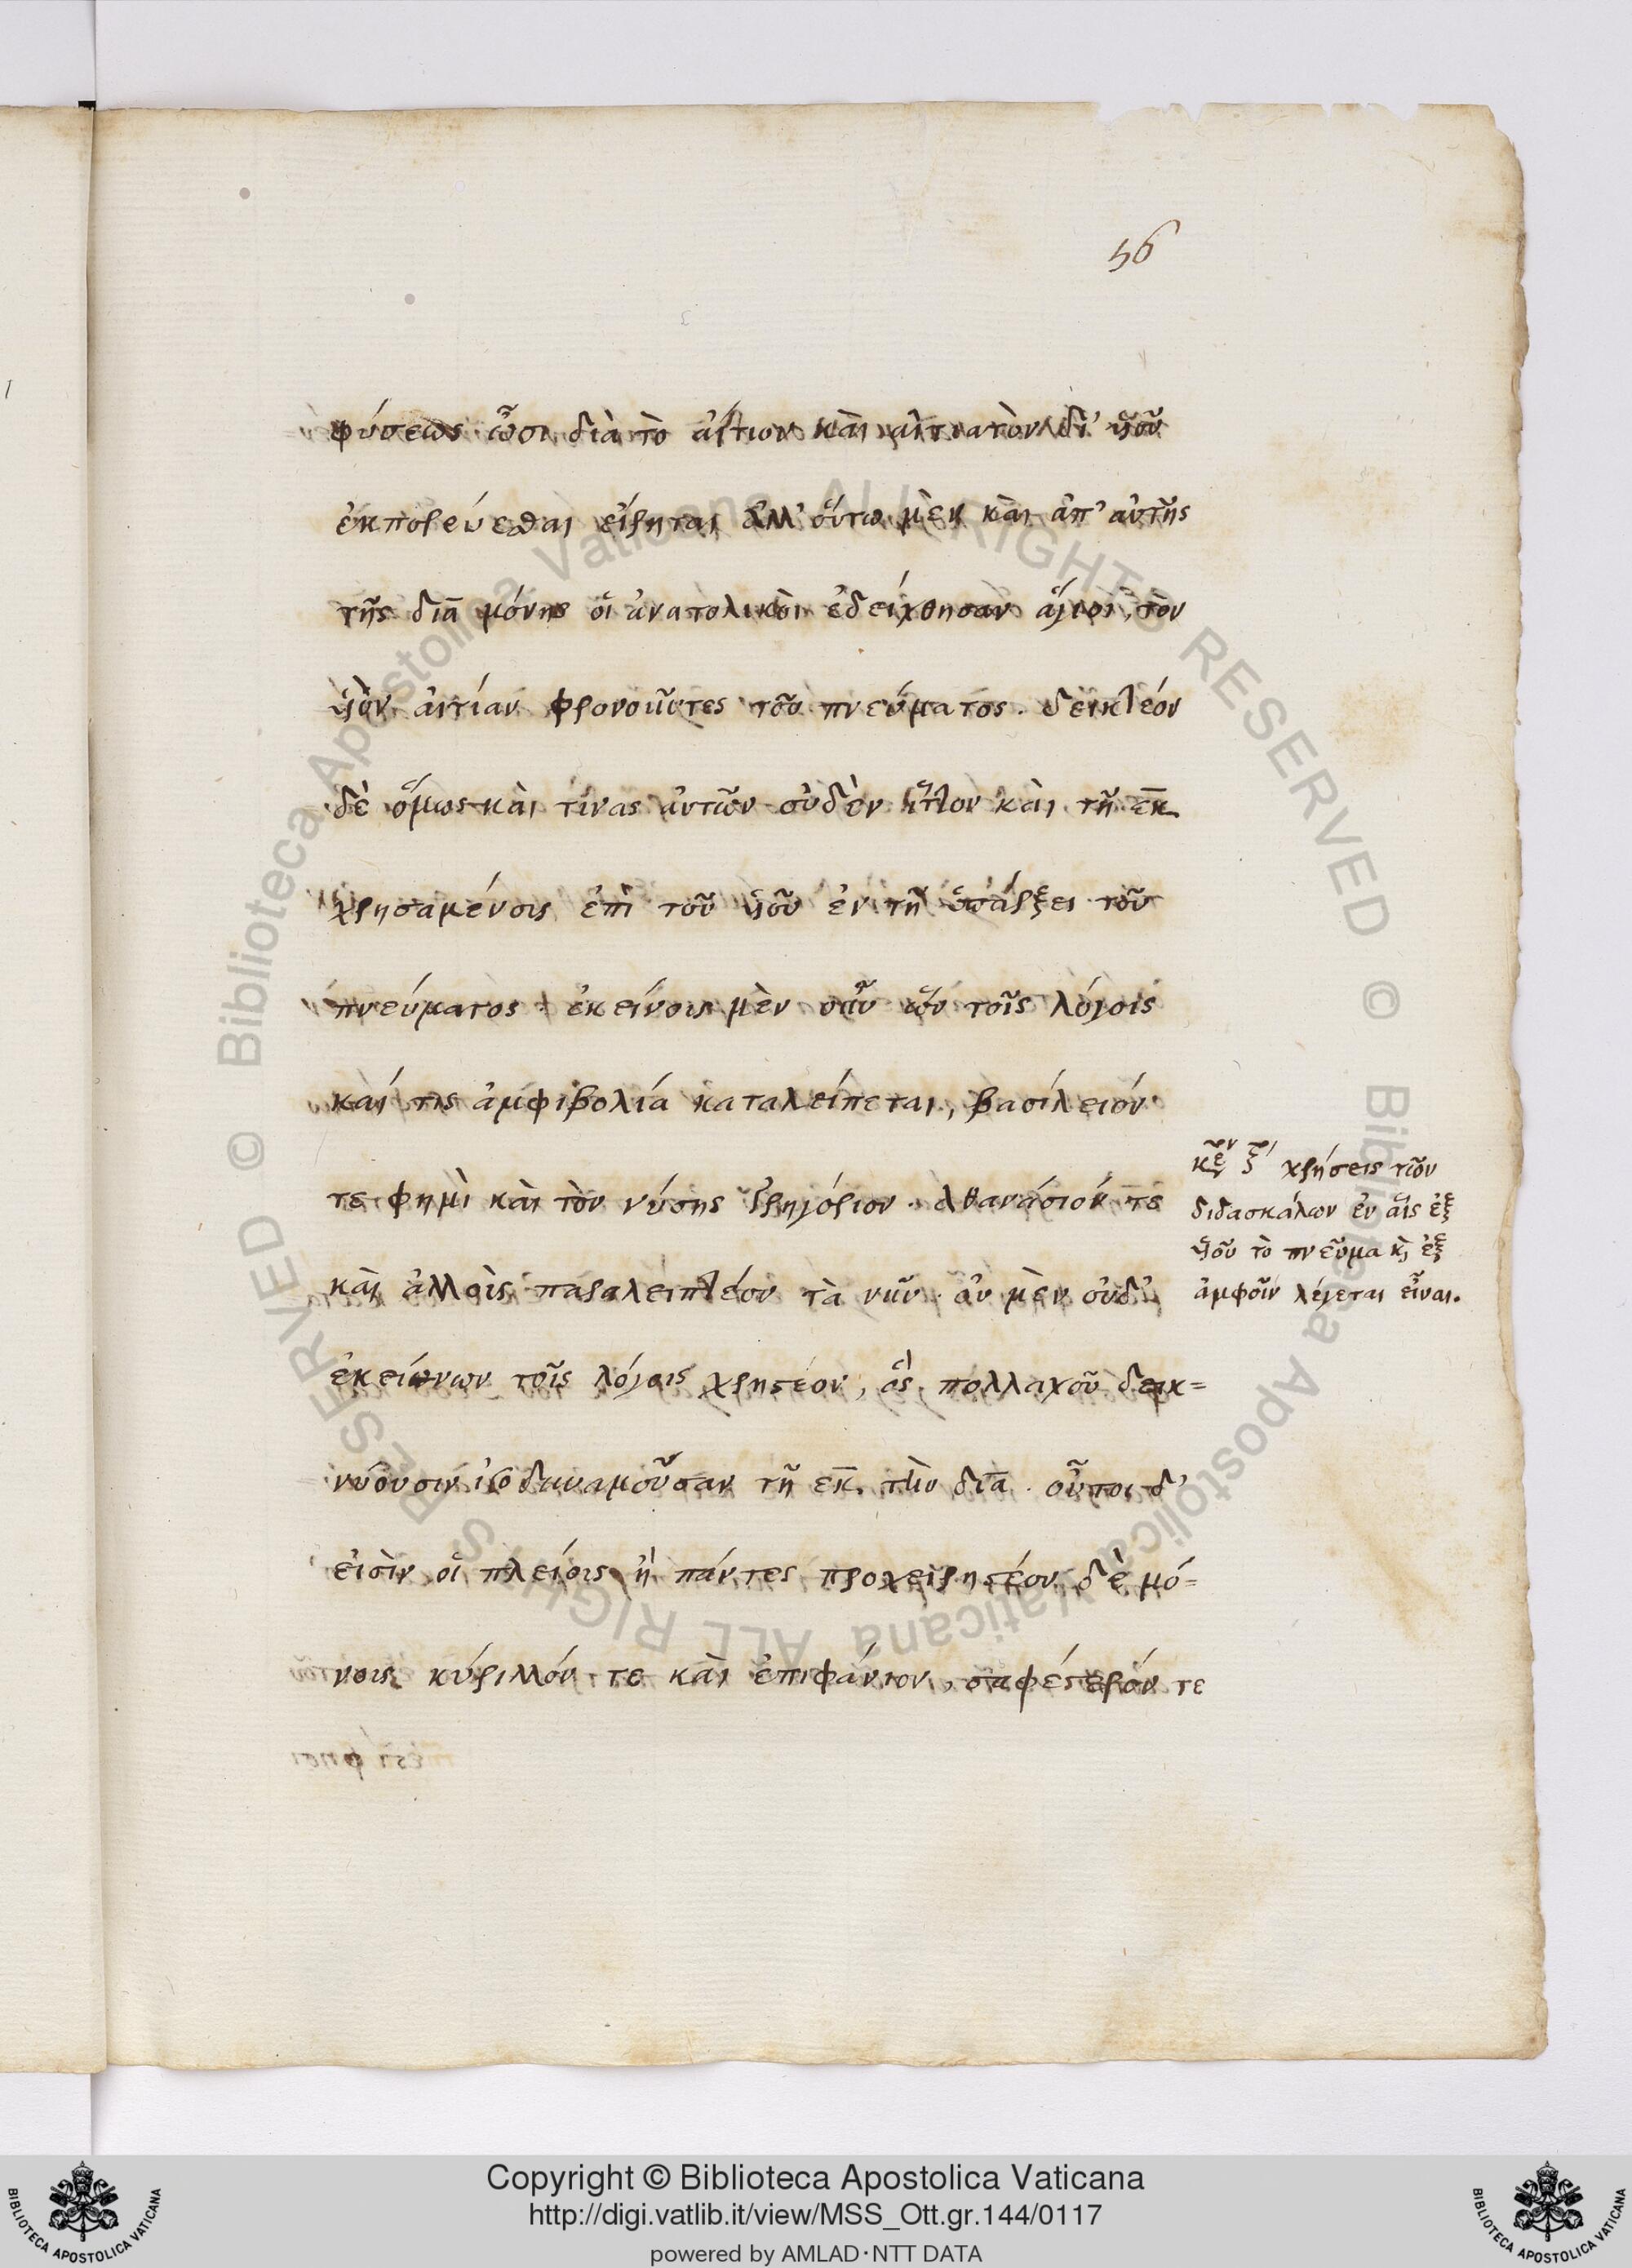 56
φύσεως ὦσι διὰ τὸ αἴτιον καὶ αἰτιατὸν δι' ὑιοῦ
ἐκπορεύεσθαι εἴρηται ἀλλ' οὕτω μὲν καὶ ἀπ' αὐτῆς
τῆς διὰ μόνης οἱ ἀνατολικοὶ ἐδείχθησαν ἅγιοι, τὸν
ὑιὸν αἰτίαν φρονοῦντες τοῦ πνεύματος. δεικτέον
δὲ ὅμως καὶ τινας αὐτῶν οὐδὲν ἧττον καὶ τῇ ἐκ
χρησαμένοις ἐπὶ τοῦ ὑιοῦ ἐν τῇ ὑπάρξει τοῦ
πνεύματος· ἐκείνοις μὲν οὖν ὧν τοῖς λόγοις
καί τις ἀμφιβολία καταλείπεται, βασίλειόν
τε φημὶ καὶ τὸν νύσης γρηγόριον. ἀθανάσιόν τε
καὶ ἄλλοις παραλειπτέον τὰ νῦν. ἂν μὲν οὐδ'
ἐκείνων τοῖς λόγοις χρηστέον, οἳ πολλαχοῦ δεικ=
νύουσιν ἰσοδυναμοῦσαν τῇ ἐκ τὴν διὰ. οὗτοι δ'
εἰσὶν οἱ πλείους ἢ πάντες προχειρηστέον δὲ μό=
νοις κύριλλόν τε καὶ ἐπιφάνιον, σαφέστερόν τε
χρήσεις τῶν
διδασκάλων ἐν αἷς ἐξ
ὑιοῦ τὸ πνεῦμα κὶ ἐξ
ἀμφοῖν λέγεται εἶναι.
© Biblioteca Apostolica Vaticana ALL RIGHTS RESERVED © Biblioteca Apostolica Vaticana ALL RIGHTS RESERVED
BIBLIOTECA APOSTOLICA VATICANA
Copyright © Biblioteca Apostolica Vaticana
http://digi.vatlib.it/view/MSS_Ott.gr.144/0117
powered by AMLAD·NTT DATA
BIBLIOTECA APOSTOLICA VATICANA